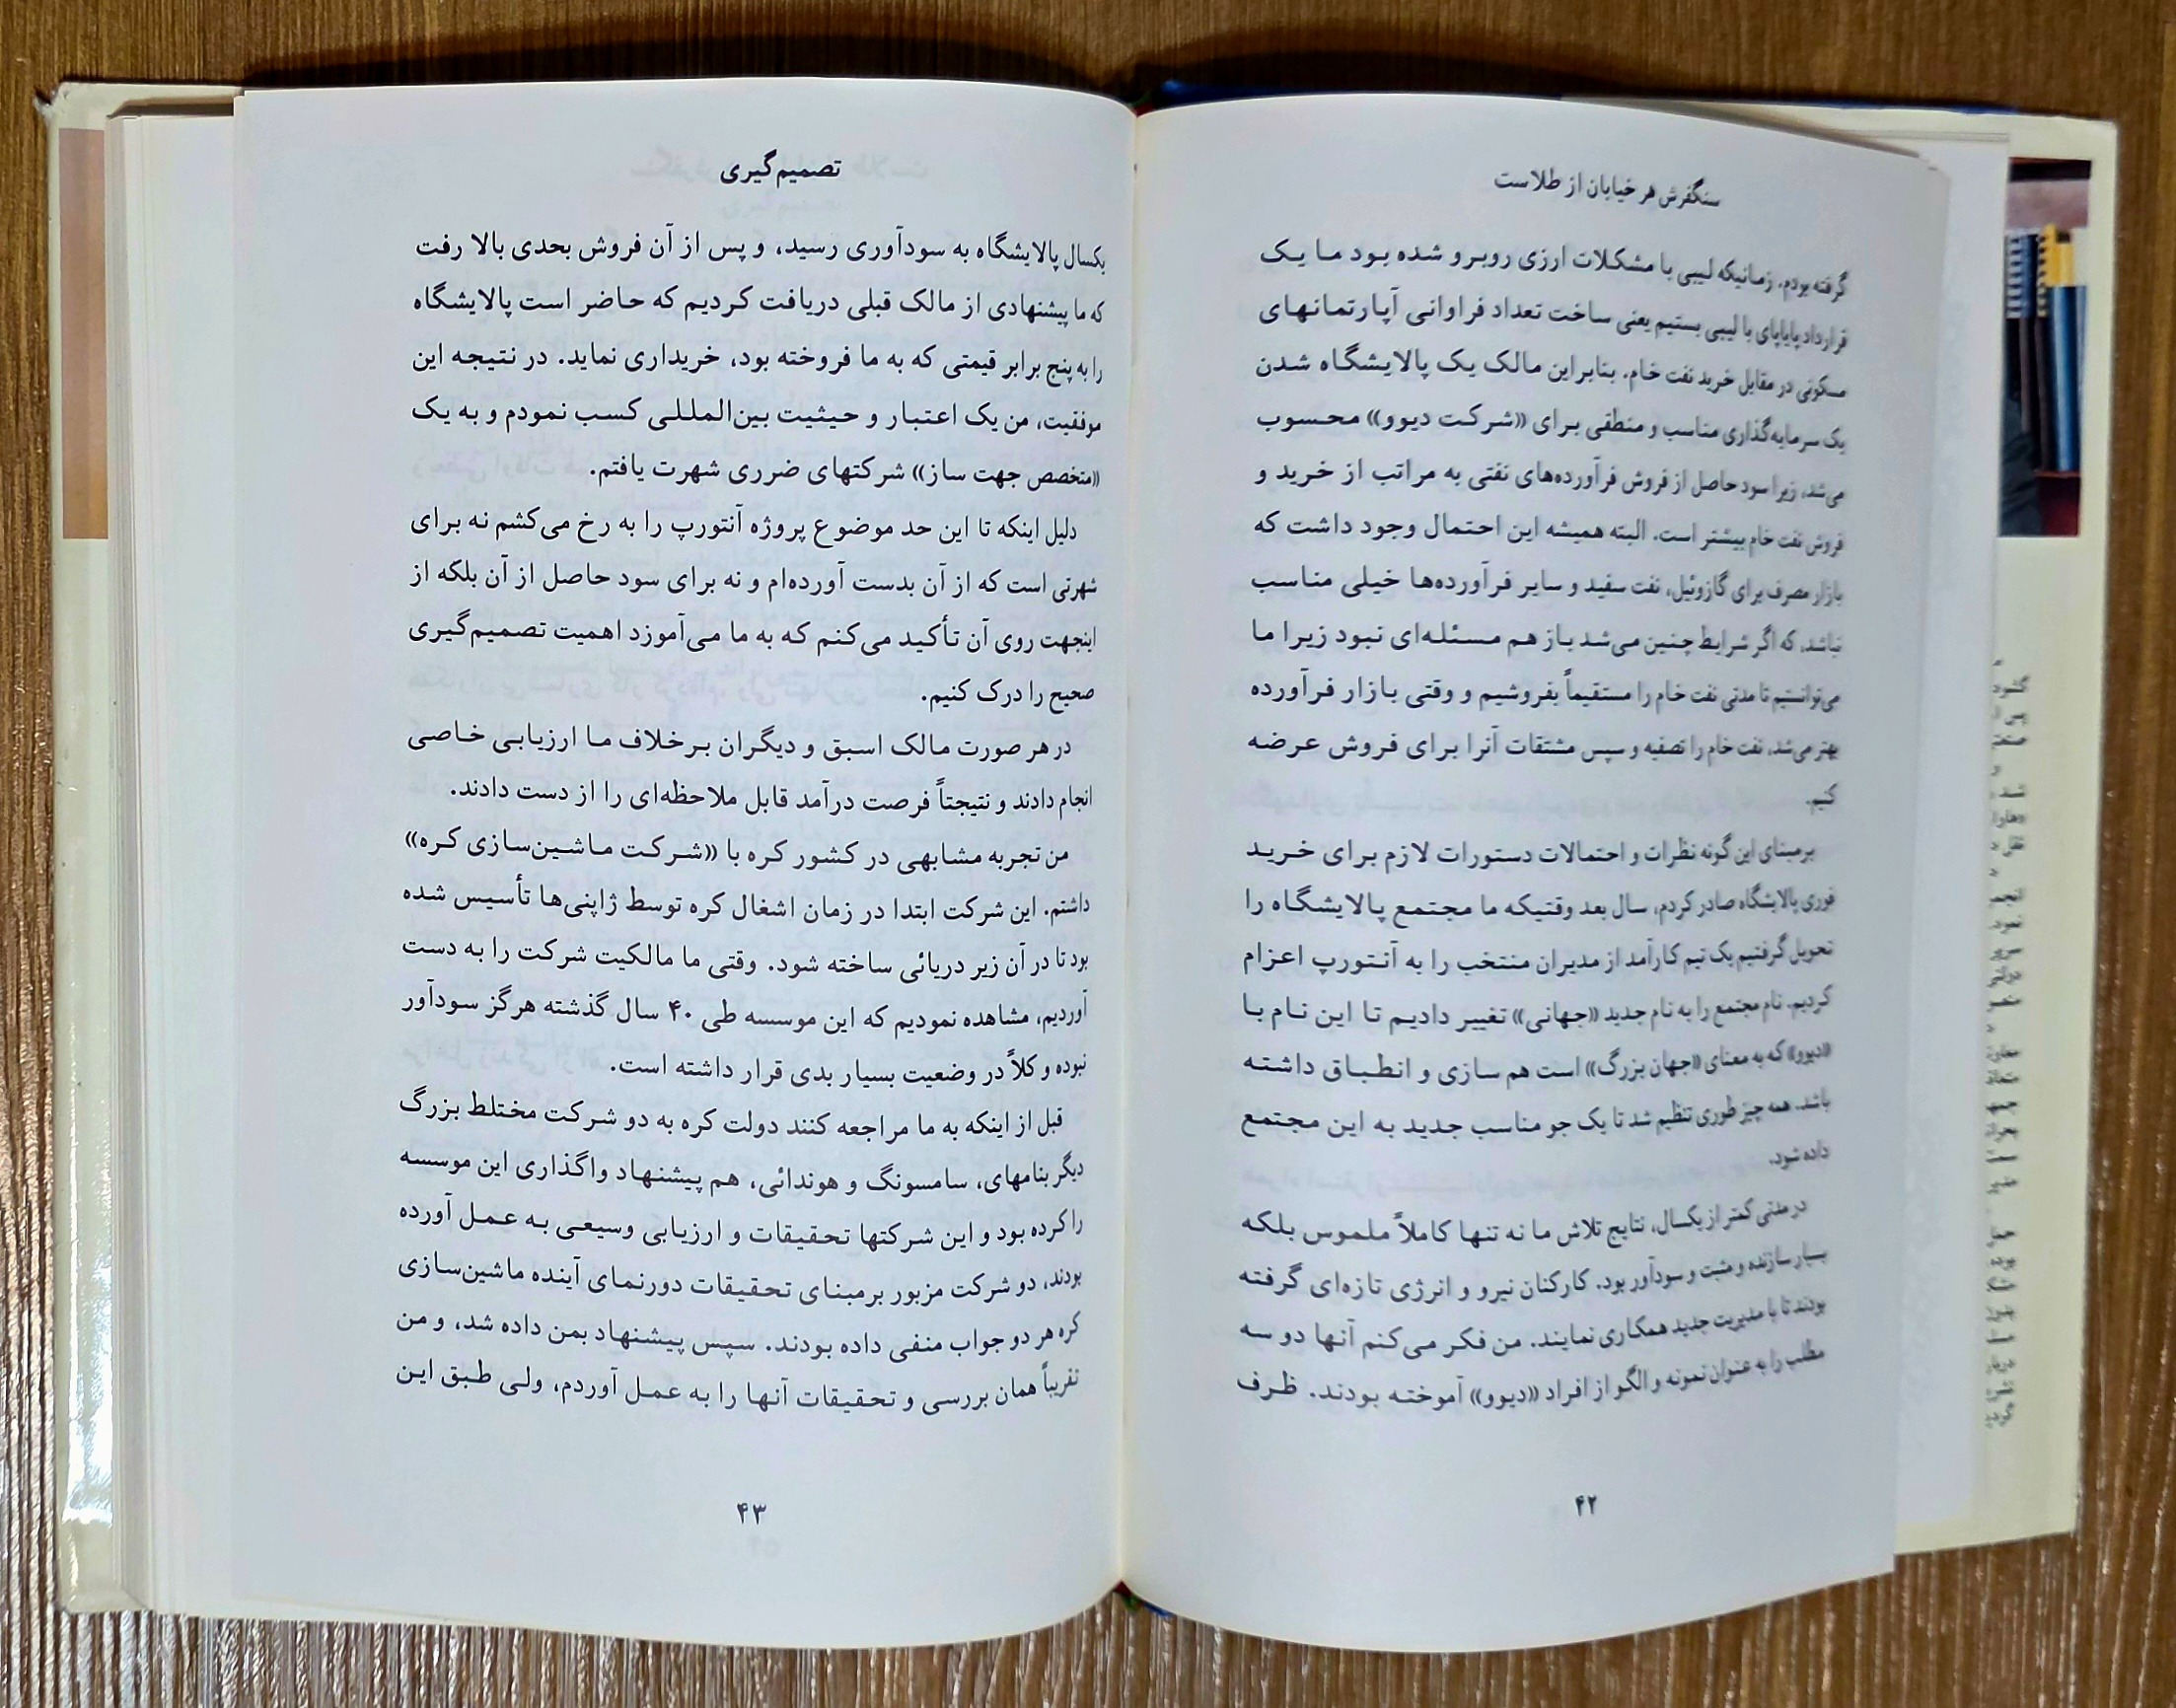 سنگفرش هر خیابان از طلاست
گرفته بودم. زمانیکه لیبی با مشکلات ارزی روبرو شده بود ما یک
قرارداد پایاپای با لیبی بستیم یعنی ساخت تعداد فراوانی آپارتمانهای
مسکونی در مقابل خرید نفت خام. بنابراین مالک یک پالایشگاه شدن
یک سرمایه‌گذاری مناسب و منطقی برای «شرکت دیوو» محسوب
می‌شد، زیرا سود حاصل از فروش فرآورده‌های نفتی به مراتب از خرید و
فروش نفت خام بیشتر است. البته همیشه این احتمال وجود داشت که
بازار مصرف برای گازوئیل، نفت سفید و سایر فرآورده‌ها خیلی مناسب
نباشد، که اگر شرایط چنین می‌شد باز هم مسئله‌ای نبود زیرا ما
می‌توانستیم تا مدتی نفت خام را مستقیماً بفروشیم و وقتی بازار فرآورده
بهتر می‌شد، نفت خام را تصفیه و سپس مشتقات آنرا برای فروش عرضه
کنیم.
برمبنای این گونه نظرات و احتمالات دستورات لازم برای خرید
فوری پالایشگاه صادر کردم، سال بعد وقتیکه ما مجتمع پالایشگاه را
تحویل گرفتیم یک تیم کارآمد از مدیران منتخب را به آنتورپ اعزام
کردیم. نام مجتمع را به نام جدید «جهانی» تغییر دادیم تا این نام با
«دیوو» که به معنای «جهان بزرگ» است هم سازی و انطباق داشته
باشد. همه چیز طوری تنظیم شد تا یک جو مناسب جدید به این مجتمع
داده شود.
در مدتی کمتر از یکسال، نتایج تلاش ما نه تنها کاملاً ملموس بلکه
بسیار سازنده و مثبت و سودآور بود. کارکنان نیرو و انرژی تازه‌ای گرفته
بودند تا با مدیریت جدید همکاری نمایند. من فکر می‌کنم آنها دو سه
مطلب را به عنوان نمونه و الگو از افراد «دیوو» آموخته بودند. ظرف
۴۲
تصمیم‌گیری
یکسال پالایشگاه به سودآوری رسید، و پس از آن فروش بحدی بالا رفت
که ما پیشنهادی از مالک قبلی دریافت کردیم که حاضر است پالایشگاه
را به پنج برابر قیمتی که به ما فروخته بود، خریداری نماید. در نتیجه این
موفقیت، من یک اعتبار و حیثیت بین‌المللی کسب نمودم و به یک
«متخصص جهت ساز» شرکتهای ضرری شهرت یافتم.
دلیل اینکه تا این حد موضوع پروژه آنتورپ را به رخ می‌کشم نه برای
شهرتی است که از آن بدست آورده‌ام و نه برای سود حاصل از آن بلکه از
اینجهت روی آن تأکید می‌کنم که به ما می‌آموزد اهمیت تصمیم‌گیری
صحیح را درک کنیم.
در هر صورت مالک اسبق و دیگران برخلاف ما ارزیابی خاصی
انجام دادند و نتیجتاً فرصت درآمد قابل ملاحظه‌ای را از دست دادند.
من تجربه مشابهی در کشور کره با «شرکت ماشین‌سازی کره»
داشتم. این شرکت ابتدا در زمان اشغال کره توسط ژاپنی‌ها تأسیس شده
بود تا در آن زیر دریائی ساخته شود. وقتی ما مالکیت شرکت را به دست
آوردیم، مشاهده نمودیم که این موسسه طی ۴۰ سال گذشته هرگز سودآور
نبوده و کلاً در وضعیت بسیار بدی قرار داشته است.
قبل از اینکه به ما مراجعه کنند دولت کره به دو شرکت مختلط بزرگ
دیگر بنامهای، سامسونگ و هوندائی، هم پیشنهاد واگذاری این موسسه
را کرده بود و این شرکتها تحقیقات و ارزیابی وسیعی به عمل آورده
بودند، دو شرکت مزبور برمبنای تحقیقات دورنمای آینده ماشین‌سازی
کره هر دو جواب منفی داده بودند. سپس پیشنهاد بمن داده شد، و من
تقریباً همان بررسی و تحقیقات آنها را به عمل آوردم، ولی طبق این
۴۳